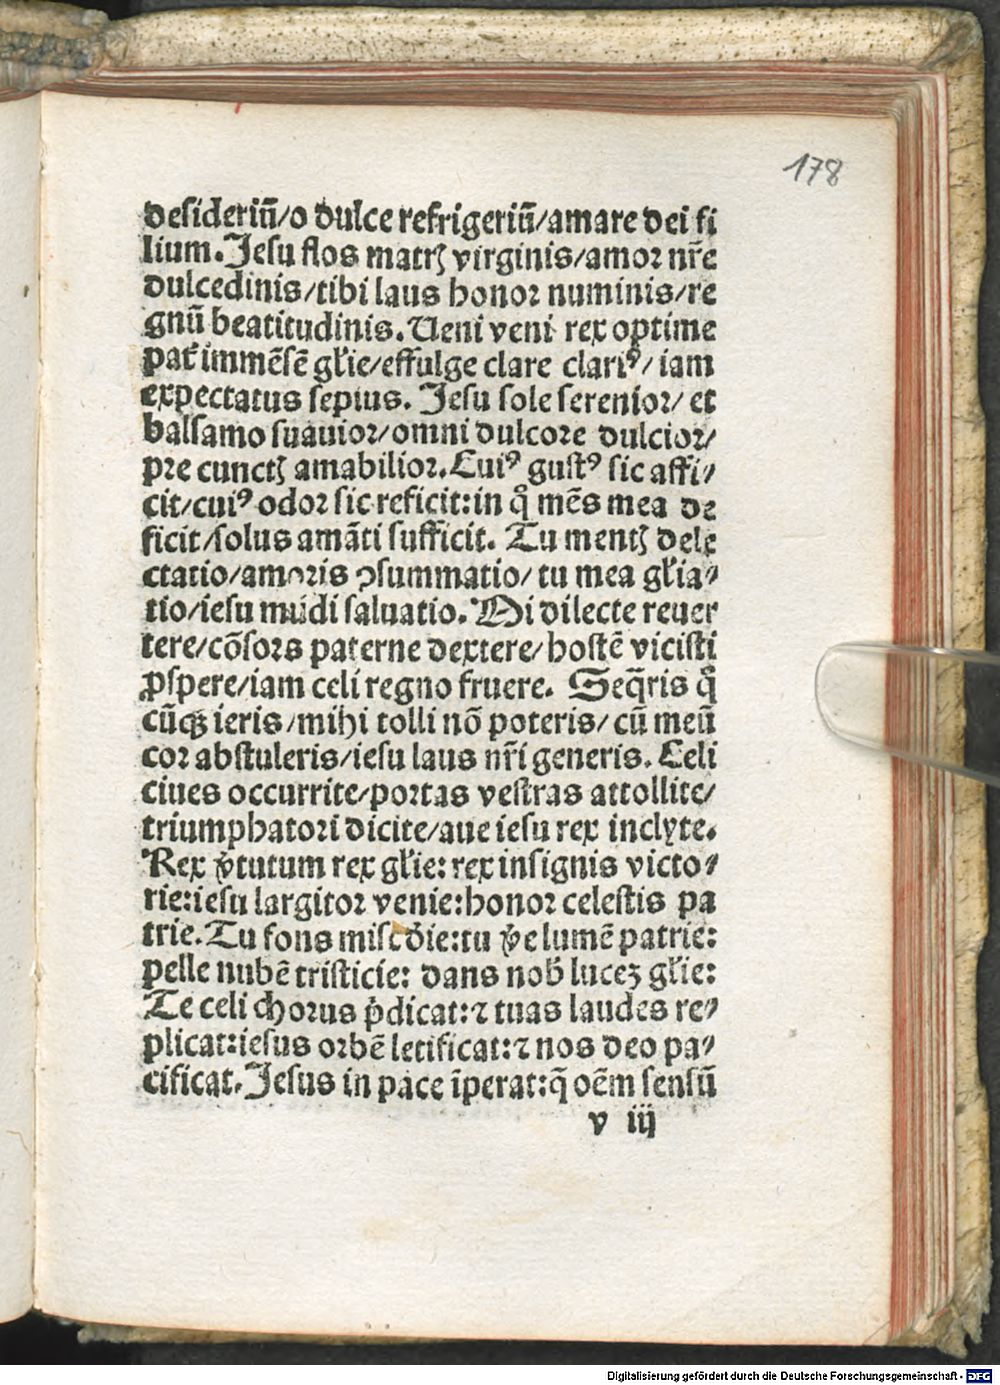 178
desideriū/o dulce refrigeriū/amare dei fi
lium. Jesu flos matrꝫ virginis/amor nr̄e
dulcedinis/tibi laus honor numinis/re
gnū beatitudinis. Ueni veni rex optime
pat̄ immēsē gl̄ie/effulge clare clariꝰ/iam
expectatus sepius. Jesu sole serenior/et
balsamo suauior/omni dulcore dulcior/
pre cunctꝫ amabilior. Cuiꝰ gustꝰ sic affi/
cit/cuiꝰ odor sic reficit:in qͦ mēs mea de
ficit/solus amāti sufficit. Tu mentꝫ dele
ctatio/amoris ꝯsummatio/tu mea gl̄ia/
tio/iesu mūdi saluatio. Mi dilecte reuer
tere/cōsors paterne dextere/hostē vicisti
ꝓspere/iam celi regno fruere. Seq̄ris qͦ
cūqꝫ ieris/mihi tolli nō poteris/cū meū
cor abstuleris/iesu laus nr̄i generis. Celi
ciues occurrite/portas vestras attollite/
triumphatori dicite/aue iesu rex inclyte.
Rex v̄tutum rex gl̄ie: rex insignis victo/
rie:iesu largitor venie:honor celestis pa
trie. Tu fons misc̄die:tu v̄e lumē patrie:
pelle nubē tristicie: dans nob̄ luceꝫ gl̄ie:
Te celi chorus p̄dicat:⁊ tuas laudes re/
plicat:iesus orbē letificat:⁊ nos deo pa/
cificat. Jesus in pace īperat:q̄ oēm sensū
v iij
Digitalisierung gefördert durch die Deutsche Forschungsgemeinschaft - DFG